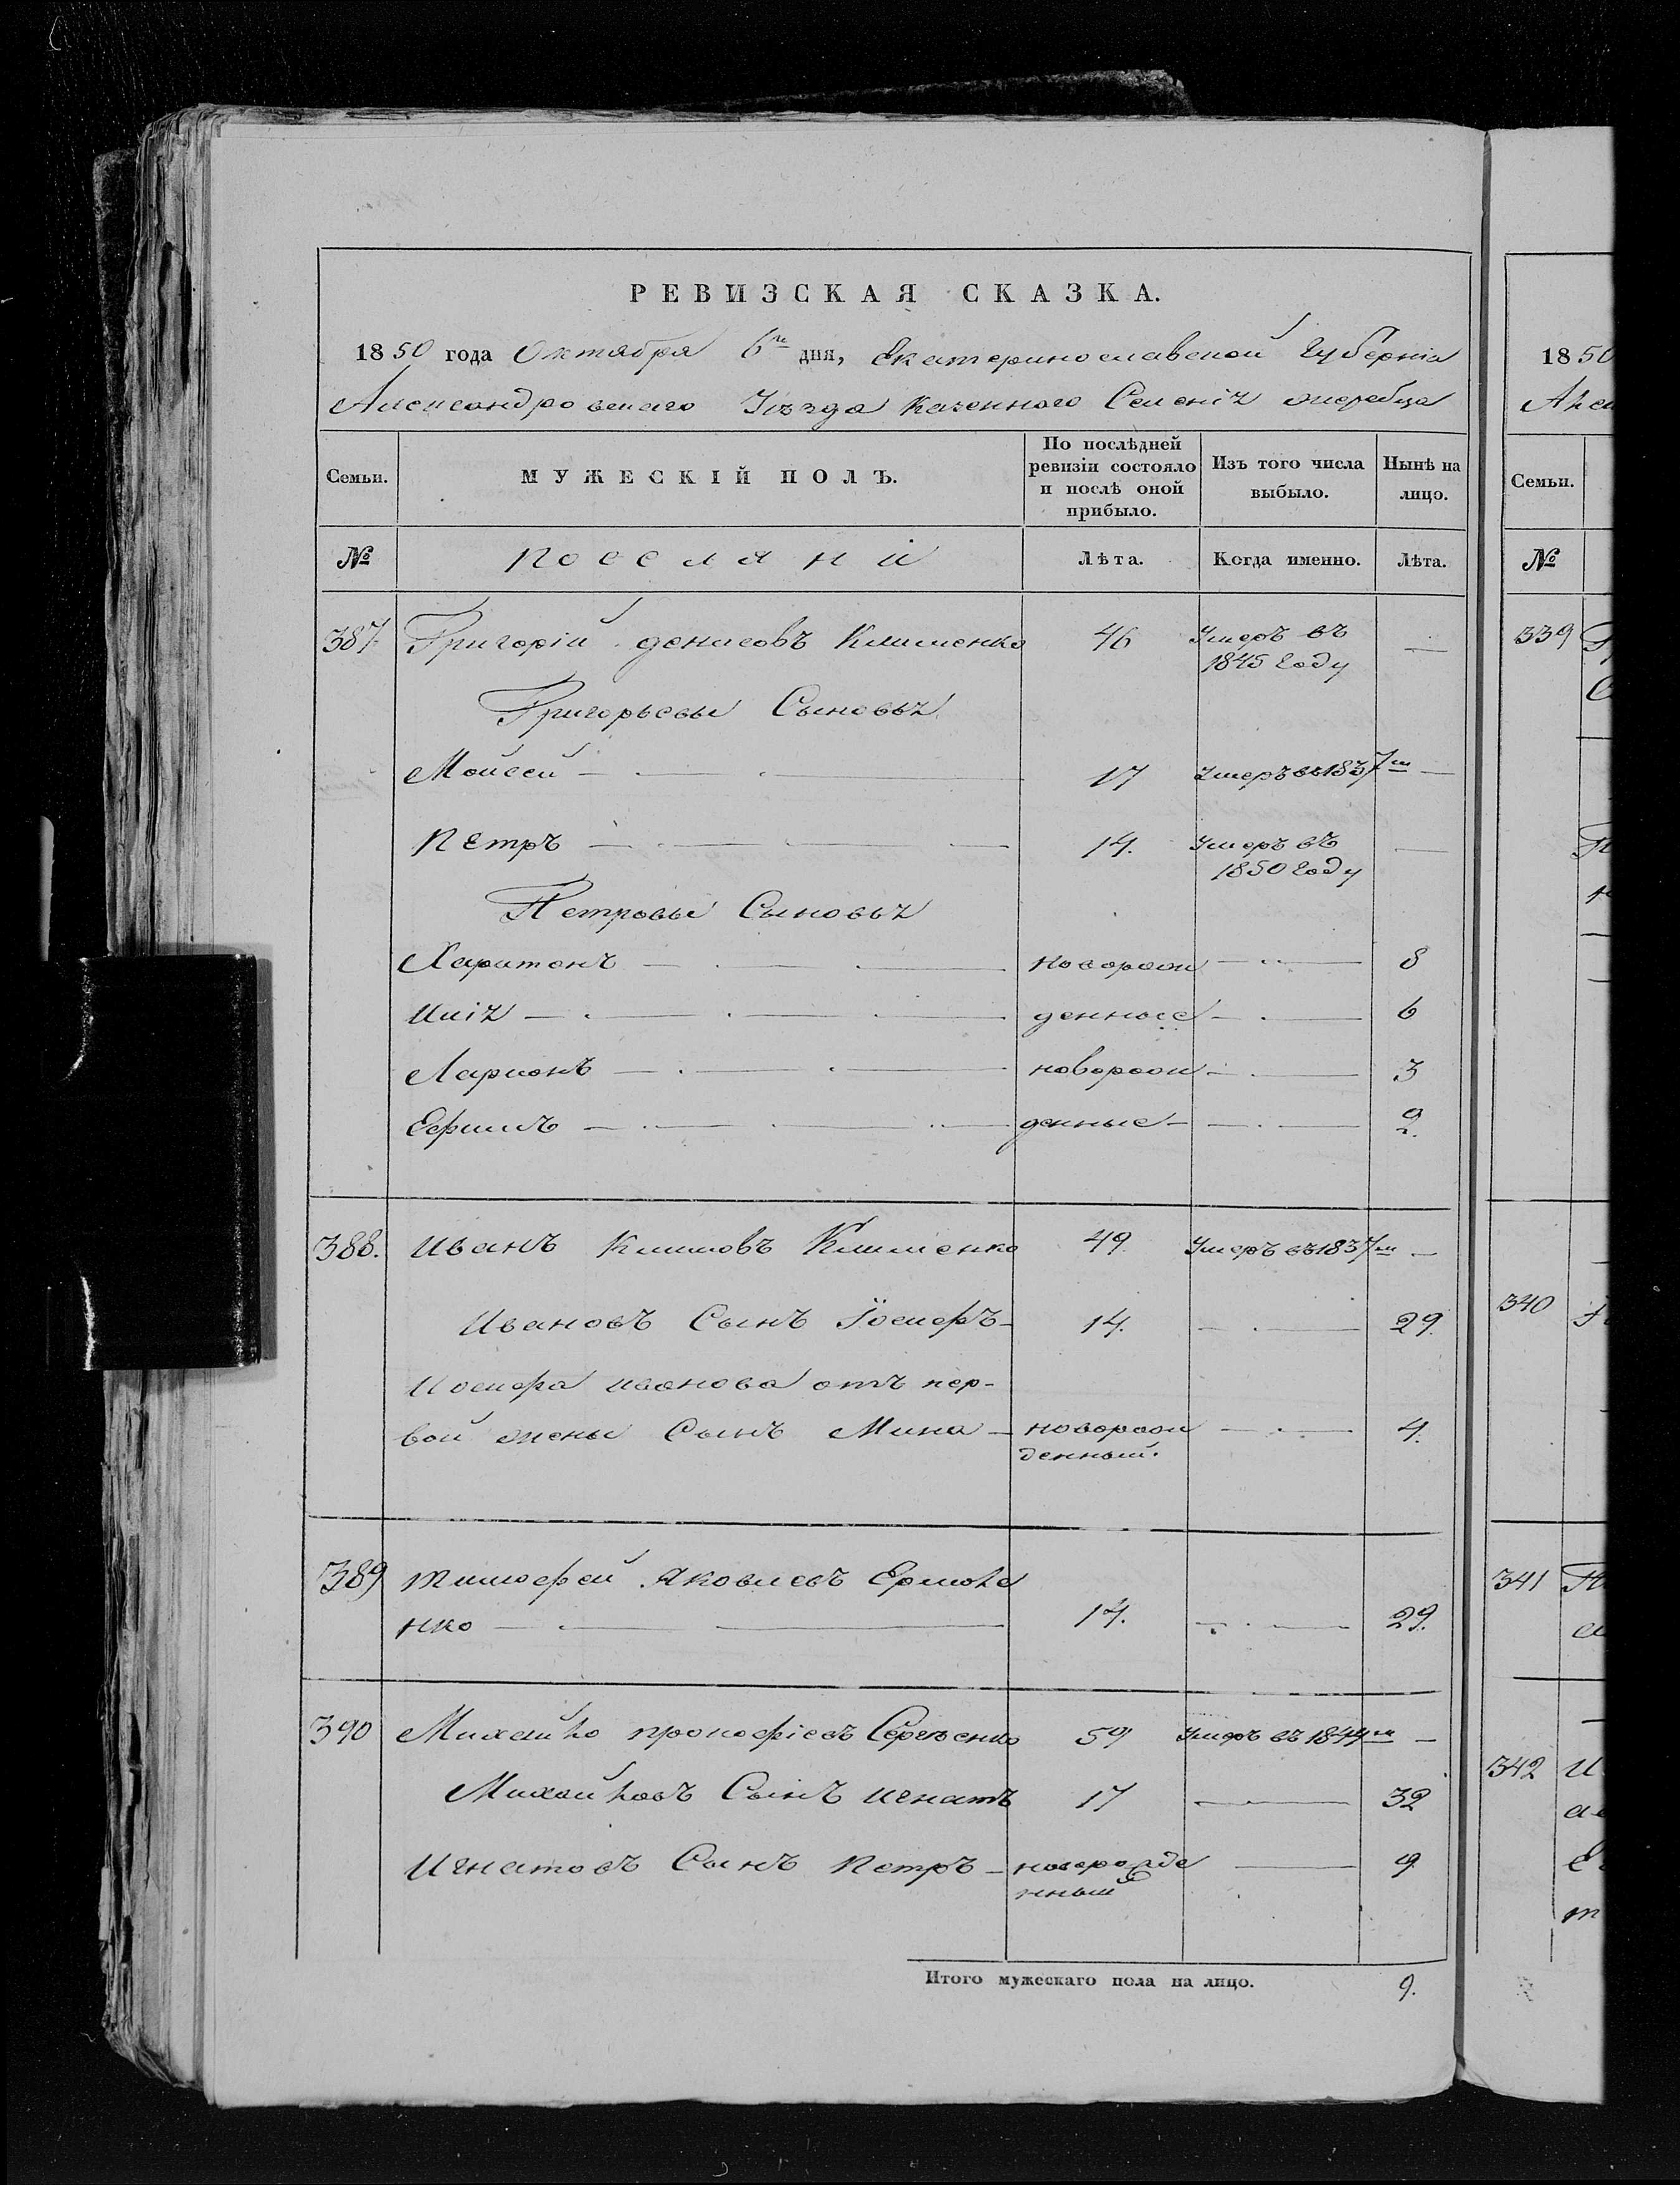 РЕВИЗСКАЯ СКАЗКА.
1850 года Октября 6го дня, Екатеринославской Губерніи
Александровскаго Уѣзда Казенного Селенія жеребца
Семьи. МУЖЕСКІЙ ПОЛЪ. По послѣдней ревизіи состояло и послѣ оной прибыло. Изъ того числа выбыло. Нынѣ на лицо.
№ Поселяни Лѣта. Когда именно. Лѣта.
387 Григорій денисовъ Клименко 46 Умеръ въ 1845 Году —
Григорьевы Сыновья
Мойсей 17 Умеръ въ 1837м —
Петръ 14. Умеръ въ 1850 Году —
Петровы Сыновья
Харитонъ новорож — 8
Илія денные — 6
Ларионъ новорож — 3
Ефимъ денные — 2.
388. Иванъ Климовъ Клименко 49 Умеръ въ 1837м —
Ивановъ Сынъ Іосифъ 14. — 29.
Иосифа иванова отъ пер-
вой жены Сынъ Мина новорож — 4.
денный.
389 тимофей Яковлевъ Ермоле
нко 14. — 29.
390 Михайло прокофіевъ Сергѣенко 59 Умеръ въ 1844м —
Михайловъ Сынъ игнатъ 17 — 32
Игнатовъ Сынъ Петръ новорожде — 9
нный
Итого мужескаго пола на лицо. 9.
1850
Алек
Семьи.
№
339
340
341
342